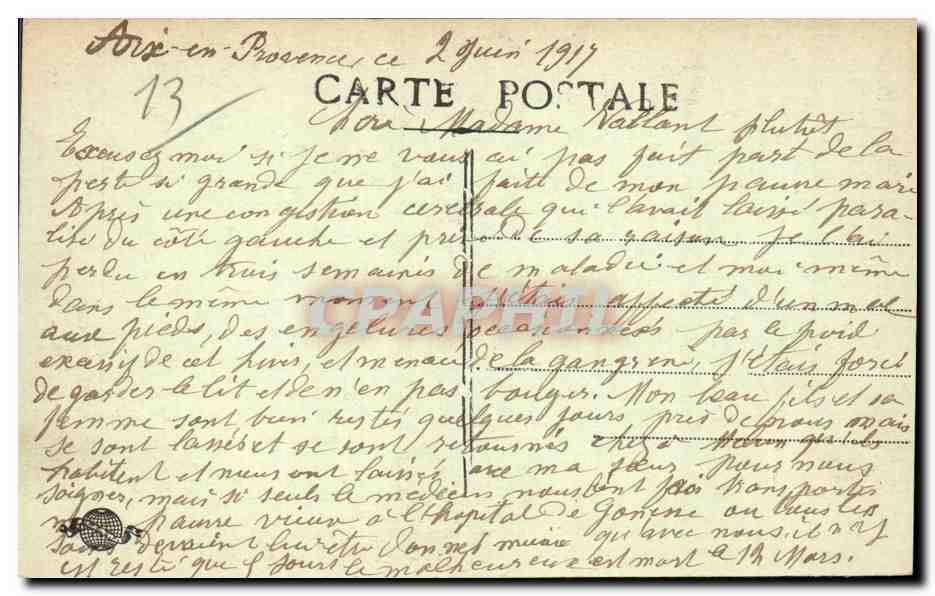 Aix-en-Provence, ce 2 Juin 1917
13
CARTE POSTALE
Chère Madame Vallant plutôt
Excusez moi si je ne vous ai pas fait part de la
perte si grande que j'ai faite de mon pauvre mari
Après une congestion cerebrale qui l'avait laissé para-
lisé du côté gauche et pris de sa raison je l'ai
perdu en trois semaines de maladie et moi même
dans le même moment j'étais affecté d'un mal
aux pieds, des engelures par le froid
excessif de cet hiver, et menacé de la gangrene, j'étais forcé
de garder le lit et de n'en pas bouger. Mon beau fils et sa
femme sont bien restés quelques jours près de nous mais
se sont lassés et se sont retournés chez
habitent et nous ont laissés avec ma sœur pour nous
soigner, mais si seuls le medecin nous ont fait transporter
pauvre vieux à l'hopital de Gonesse ou tous les
soins devaient lui être donnés mieux qu'avec nous, il n'y
est resté que 5 jours le malheureux est mort le 12 Mars.
CPAPHIL